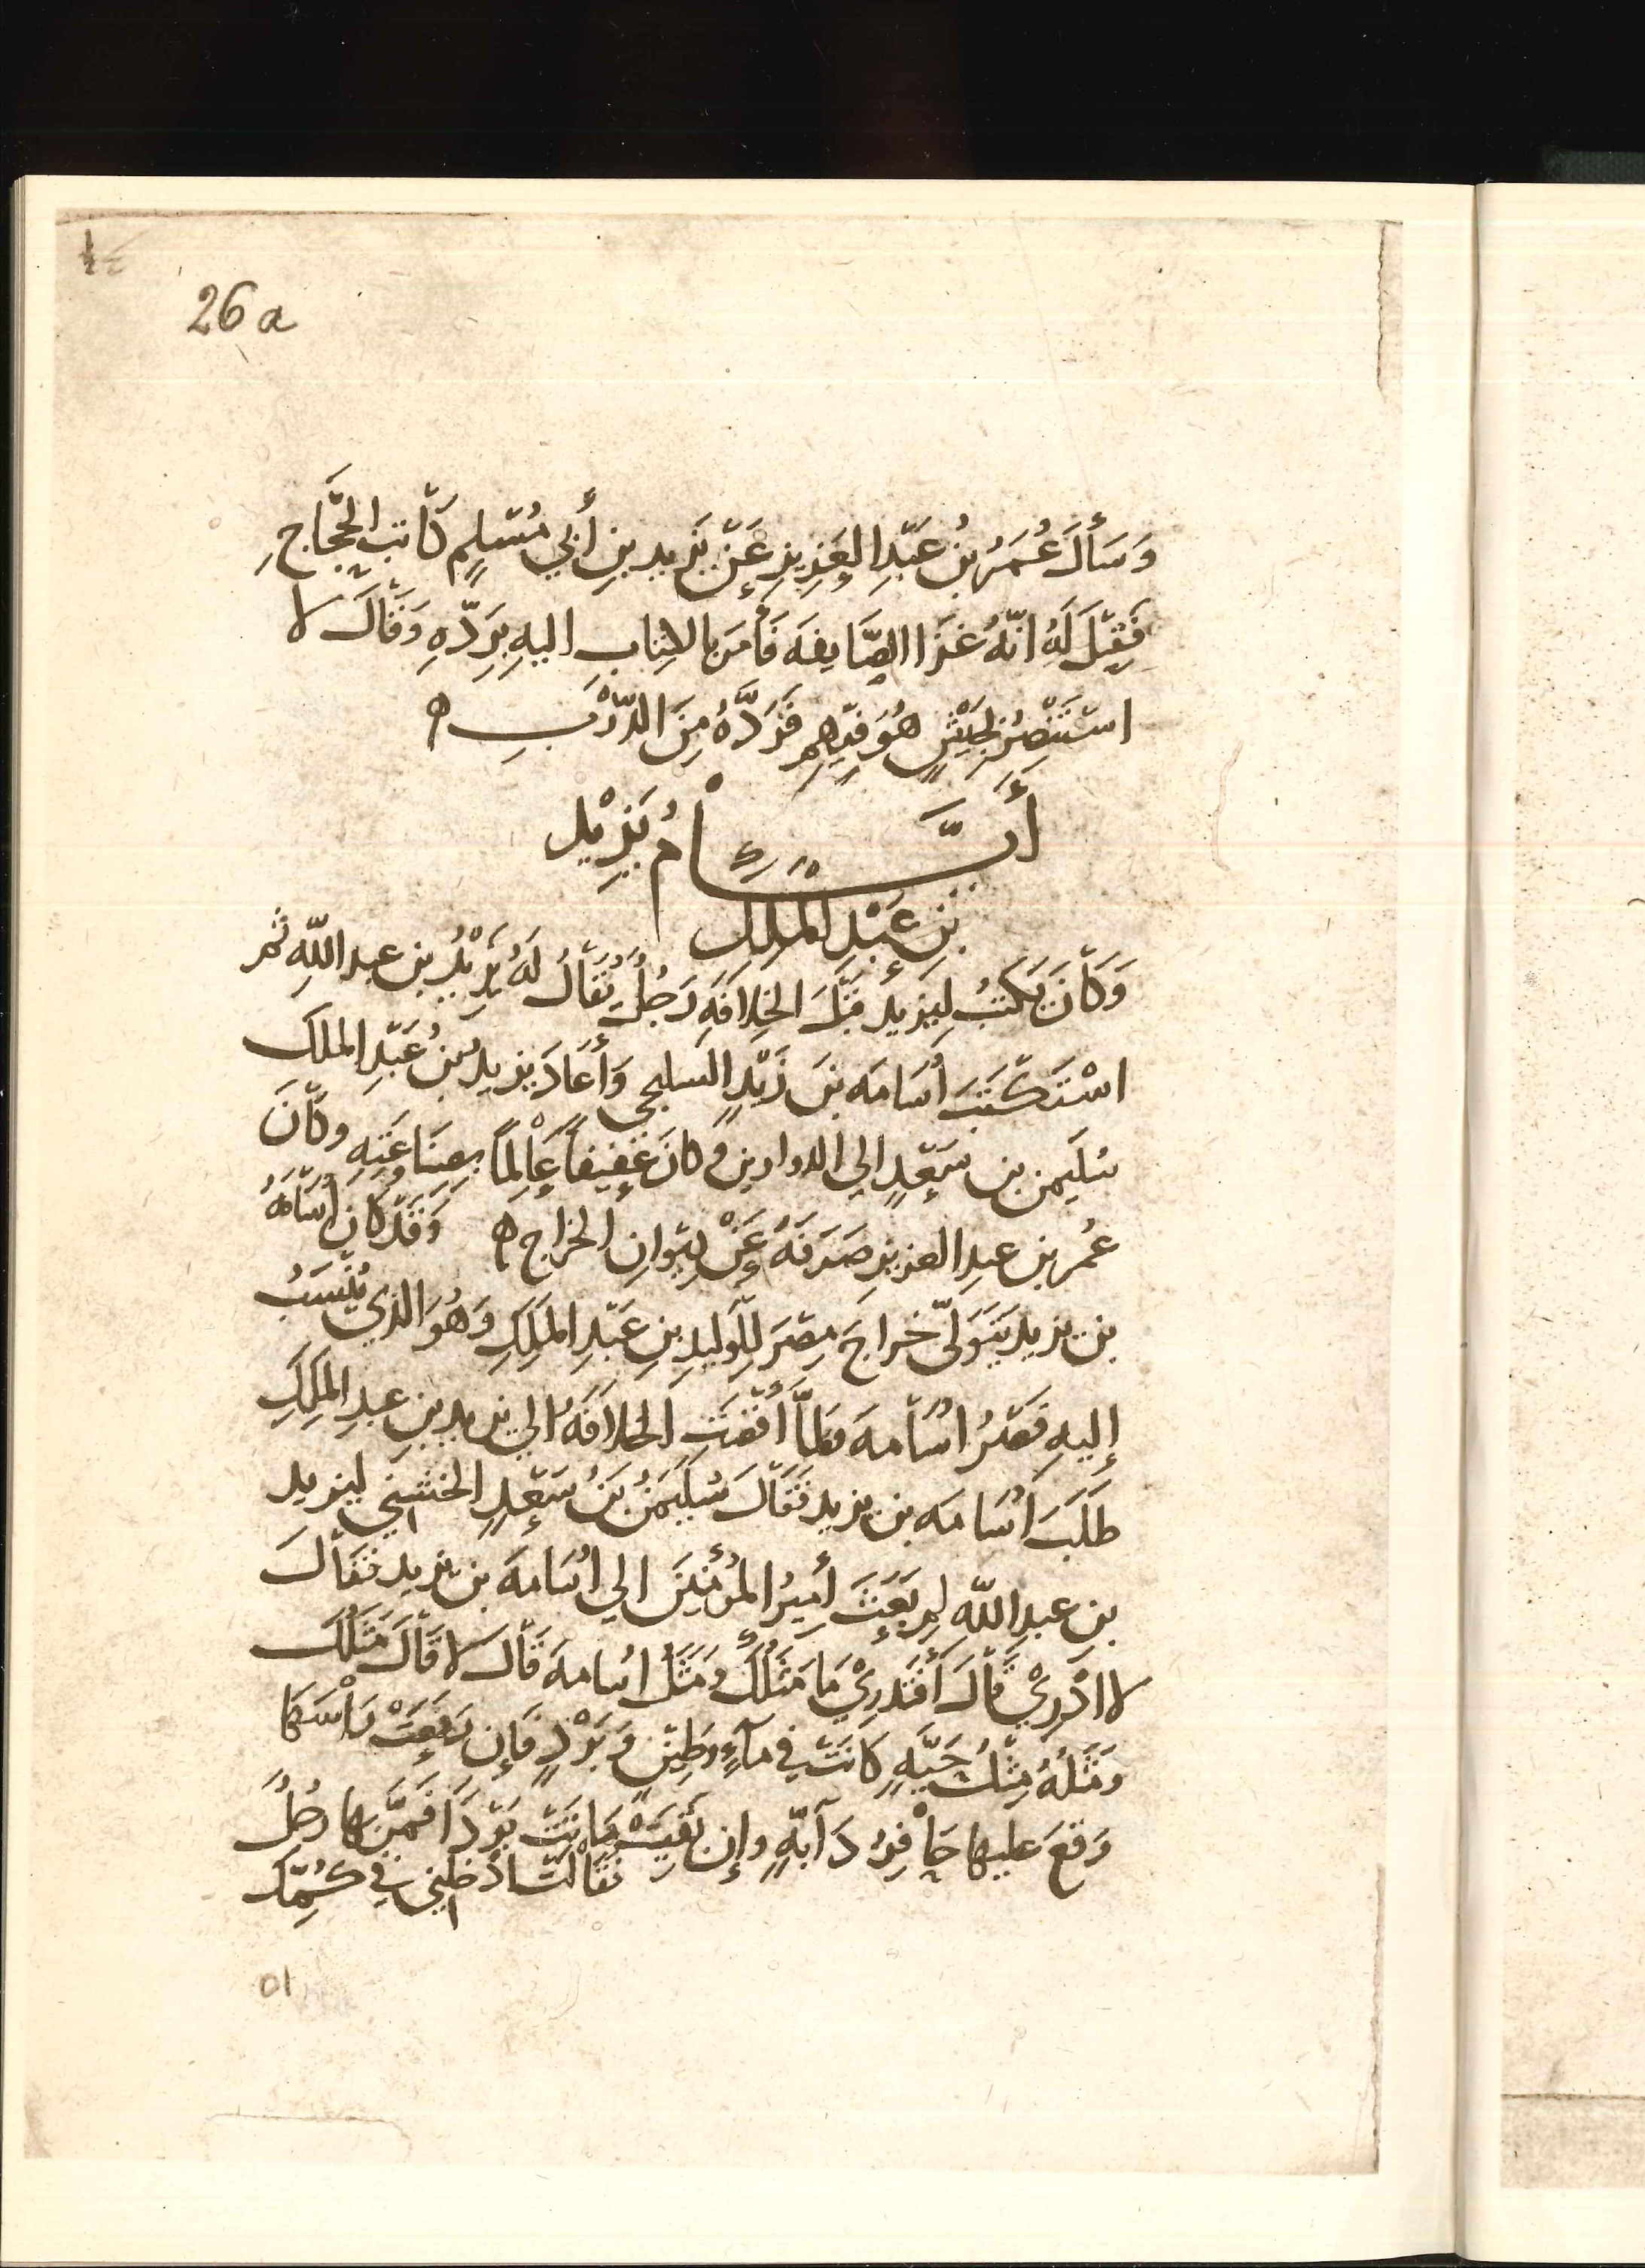 26 a
وَسَأَلَ عُمَرُ بنُ عَبْدِ العَزِيزِ عَنْ يَزِيدِ بنِ أَبِي مُسْلِمٍ كَاتِبِ الحَجَّاجِ
فَقِيْلَ لَهُ انَّهُ غَزَا الصَّايِفَه فَأَمَرَ بالكِتابِ اليهِ بِرَدِّهِ وَقَالَ لا
اسْتَنْصِرُ بِجَيْشٍ هُوَ فِيْهِم فَرَدَّهُ مِنَ الدَّرْبِ ه
أَيَّامُ يَزِيْد
بْنِ عَبْدِ المَلِكِ
وَكَانَ يَكتُبُ لِيَزِيدَ قَبْلَ الخِلَافَهِ رَجُلٌ يُقَالُ لَهُ يَزِيْدُ بن عبد اللّه ثم
اسْتَكْتَبَ أُسَامَه بنَ زَيْدٍ السليحي وَأَعَادَ يزيدُ بنُ عَبْدِ الملك
سُلَيمن بن سَعْدٍ الي الدواوين وكانَ عَفِيفاً عَالِماً بصِنَاعَتِهِ وكَانَ
عُمر بن عبدِ العزيز صَرَفَهُ عَنْ دِيْوانِ الخراج ه وَقَدْ كان أُسَامَهُ
بن يزيد يَتَوَلَّى خراجَ مِصْرَ لِلْوَليدِ بنِ عَبْدِ المَلِكِ وَهُوَ الذي يُنْسَبُ
إليهِ قَصْرُ اُسَامه فلمَّا أَفْضَتِ الخلافَهُ الي يزيد بنِ عبدِ المَلِكِ
طَلَبَ اُسَامه بن يزيد فَقَالَ سُلَيمَنُ بنُ سَعْدٍ الخشني ليزيد
بن عبد اللّه لِم بَعَثَ أَمِيرُ المُؤمِنِينَ الي اُسَامهَ بن يزيد فقَالَ
لا ادْرِيْ قَالَ أَفَتَدرِيْ مَا مَثَلُكَ ومَثَلُ اسامهَ قَالَ لا قَالَ مَثَلُكَ
ومَثَلُهُ مِثْلُ حَيَّهٍ كانَتْ في مآءٍ وطِيْنٍ وَبَرْدٍ فَإن رَفَعَتْ رَاْسَها
وَقعَ عليها حَافِرُ دَآبَّهٍ وإن بَقِيَتْ مَاتَتْ بَرْداً فَمَرَّ بها رجُلٌ
فقَالَت ادْخِلني في كُمِّكَ
٥١